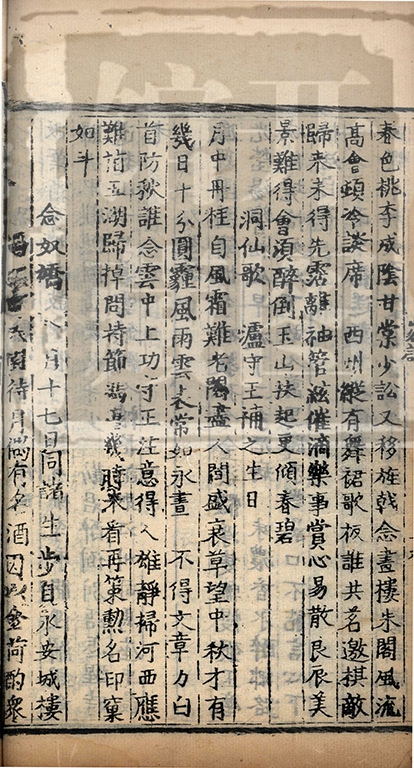 春色桃李成陰甘棠少訟又移旌戟念畫樓朱閣風流
髙會頓冷談席 西州縱有舞裙歌板誰共名邀棋敵
歸來未得先霑離袖管絃催滴樂事賞心易散良辰美
景難得會須醉倒玉山扶起更傾春碧
洞仙歌 瀘守王補之生日
月中丹桂自風霜難老閱盡人間盛衰草望中秋才有
幾日十分圓霾風雨雲表常如永晝 不得文章力白
首防秋誰念雲中上功守正注意得人雄靜掃河西應
難 五湖歸棹問持節馮唐幾時來看再策勳名印窠
如斗
念奴嬌 八月十七日同諸生步自永安城樓
園待月 有名酒因 金荷酌衆